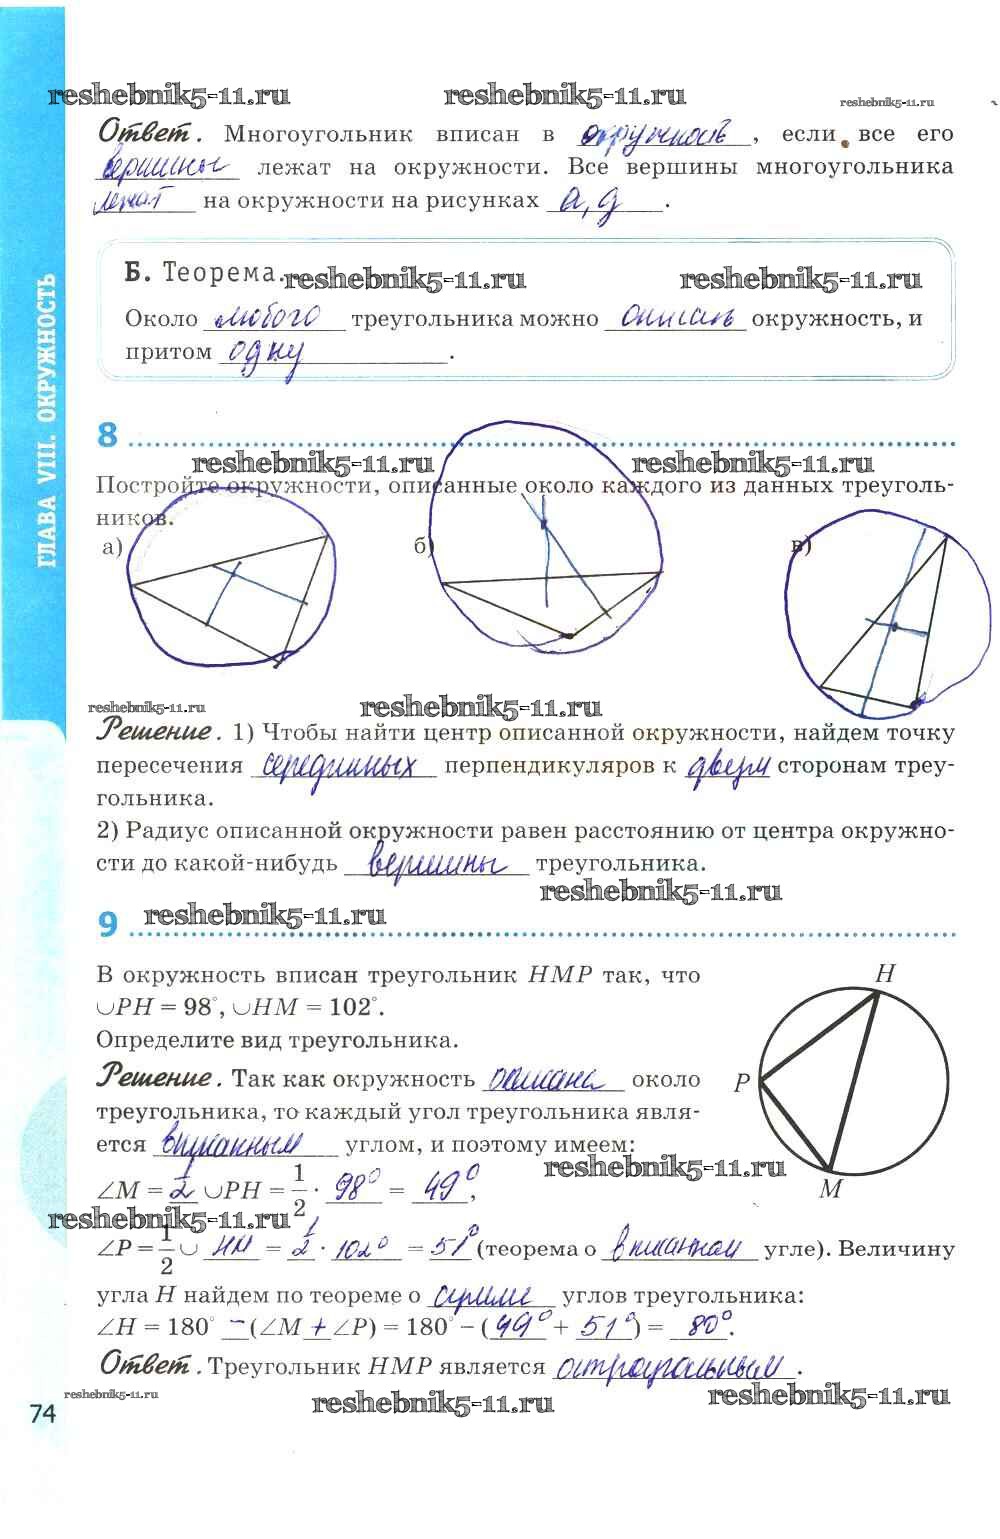 reshebnik5-11.ru reshebnik5-11.ru reshebnik5-11.ru
Ответ. Многоугольник вписан в окружность, если все его
вершины лежат на окружности. Все вершины многоугольника
лежат на окружности на рисунках а, д.
Б. Теорема. reshebnik5-11.ru reshebnik5-11.ru
Около любого треугольника можно описать окружность, и
притом одну.
ГЛАВА VIII. ОКРУЖНОСТЬ
8
reshebnik5-11.ru reshebnik5-11.ru
Постройте окружности, описанные около каждого из данных треуголь-
ников.
а) б) в)
reshebnik5-11.ru reshebnik5-11.ru
Решение. 1) Чтобы найти центр описанной окружности, найдем точку
пересечения серединных перпендикуляров к двум сторонам треу-
гольника.
2) Радиус описанной окружности равен расстоянию от центра окружно-
сти до какой-нибудь вершины треугольника.
reshebnik5-11.ru
9 reshebnik5-11.ru
В окружность вписан треугольник HMP так, что
◡PH = 98°, ◡HM = 102°.
Определите вид треугольника.
Решение. Так как окружность описана около
треугольника, то каждый угол треугольника явля-
ется вписанным углом, и поэтому имеем:
H
P
M
reshebnik5-11.ru
∠M = 1/2 ◡PH = 1/2 · 98° = 49°,
reshebnik5-11.ru
∠P = 1/2 ◡ HM = 1/2 · 102° = 51° (теорема о вписанном угле). Величину
угла H найдем по теореме о сумме углов треугольника:
∠H = 180° − (∠M + ∠P) = 180° − (49° + 51°) = 80°.
Ответ. Треугольник HMP является остроугольным.
reshebnik5-11.ru reshebnik5-11.ru reshebnik5-11.ru
74